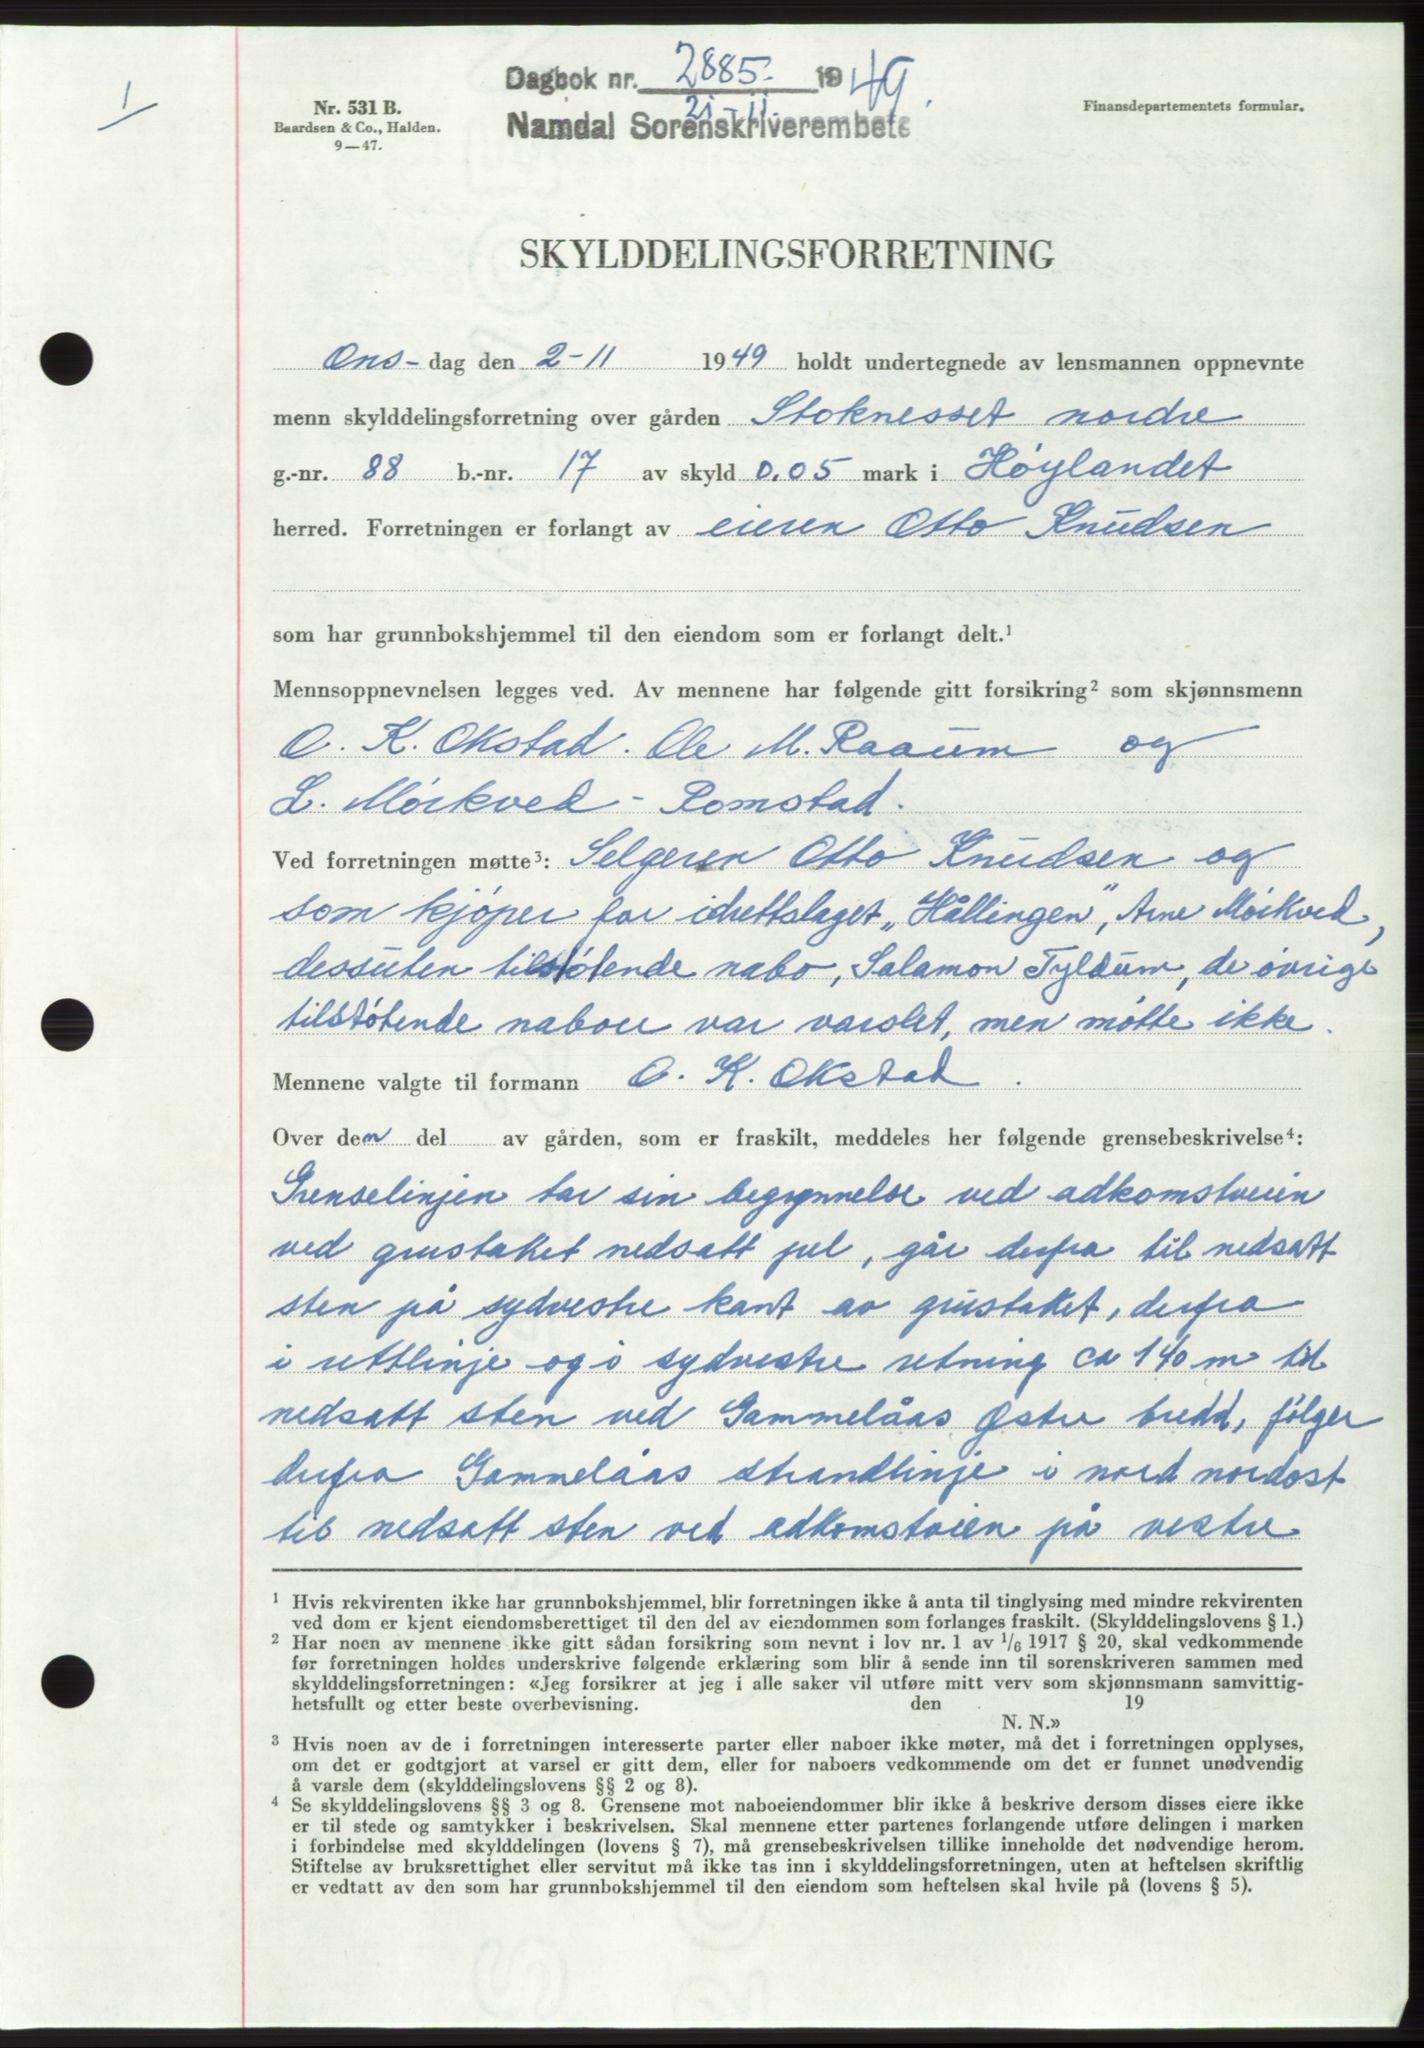 1
Nr. 531 B.
Baardsen & Co., Halden.
9—47.
Dagbok nr. 2885. 1949.
21-11.
Namdal Sorenskriverembete
Finansdepartementets formular.
SKYLDDELINGSFORRETNING
Ons- dag den 2-11 1949 holdt undertegnede av lensmannen oppnevnte
menn skylddelingsforretning over gården Stoknesset nordre
g.-nr. 88 b.-nr. 17 av skyld 0.05 mark i Høylandet
herred. Forretningen er forlangt av eieren Otto Knudsen
som har grunnbokshjemmel til den eiendom som er forlangt delt.¹
Mennsoppnevnelsen legges ved. Av mennene har følgende gitt forsikring² som skjønnsmenn
O. K. Okstad. Ole M. Raaum og
L. Mörkved - Romstad.
Ved forretningen møtte³: Selgeren Otto Knudsen og
som kjøper for idrettslaget „Hållingen”, Arne Mörkved,
dessuten tilstøtende nabo, Salamon Tyldum, de øvrige
tilstøtende naboer var varslet, men møtte ikke.
Mennene valgte til formann O. K. Okstad.
Over den del av gården, som er fraskilt, meddeles her følgende grensebeskrivelse⁴:
Grenselinjen tar sin begynnelse ved adkomstveien
ved grustaket nedsatt pel, går derfra til nedsatt
sten på sydvestre kant av grustaket, derfra
i rettlinje og i sydvestre retning ca 140 m til
nedsatt sten ved Gammelåas østre bredd, følger
derfra Gammelåas strandlinje i nord nordost
til nedsatt sten ved adkomstveien på vestre
¹ Hvis rekvirenten ikke har grunnbokshjemmel, blir forretningen ikke å anta til tinglysing med mindre rekvirenten
ved dom er kjent eiendomsberettiget til den del av eiendommen som forlanges fraskilt. (Skylddelingslovens § 1.)
² Har noen av mennene ikke gitt sådan forsikring som nevnt i lov nr. 1 av 1/6 1917 § 20, skal vedkommende
før forretningen holdes underskrive følgende erklæring som blir å sende inn til sorenskriveren sammen med
skylddelingsforretningen: «Jeg forsikrer at jeg i alle saker vil utføre mitt verv som skjønnsmann samvittig-
hetsfullt og etter beste overbevisning. den 19
N. N.»
³ Hvis noen av de i forretningen interesserte parter eller naboer ikke møter, må det i forretningen opplyses,
om det er godtgjort at varsel er gitt dem, eller for naboers vedkommende om det er funnet unødvendig
å varsle dem (skylddelingslovens §§ 2 og 8).
⁴ Se skylddelingslovens §§ 3 og 8. Grensene mot naboeiendommer blir ikke å beskrive dersom disses eiere ikke
er til stede og samtykker i beskrivelsen. Skal mennene etter partenes forlangende utføre delingen i marken
i forbindelse med skylddelingen (lovens § 7), må grensebeskrivelsen tillike inneholde det nødvendige herom.
Stiftelse av bruksrettighet eller servitut må ikke tas inn i skylddelingsforretningen, uten at heftelsen skriftlig
er vedtatt av den som har grunnbokshjemmel til den eiendom som heftelsen skal hvile på (lovens § 5).